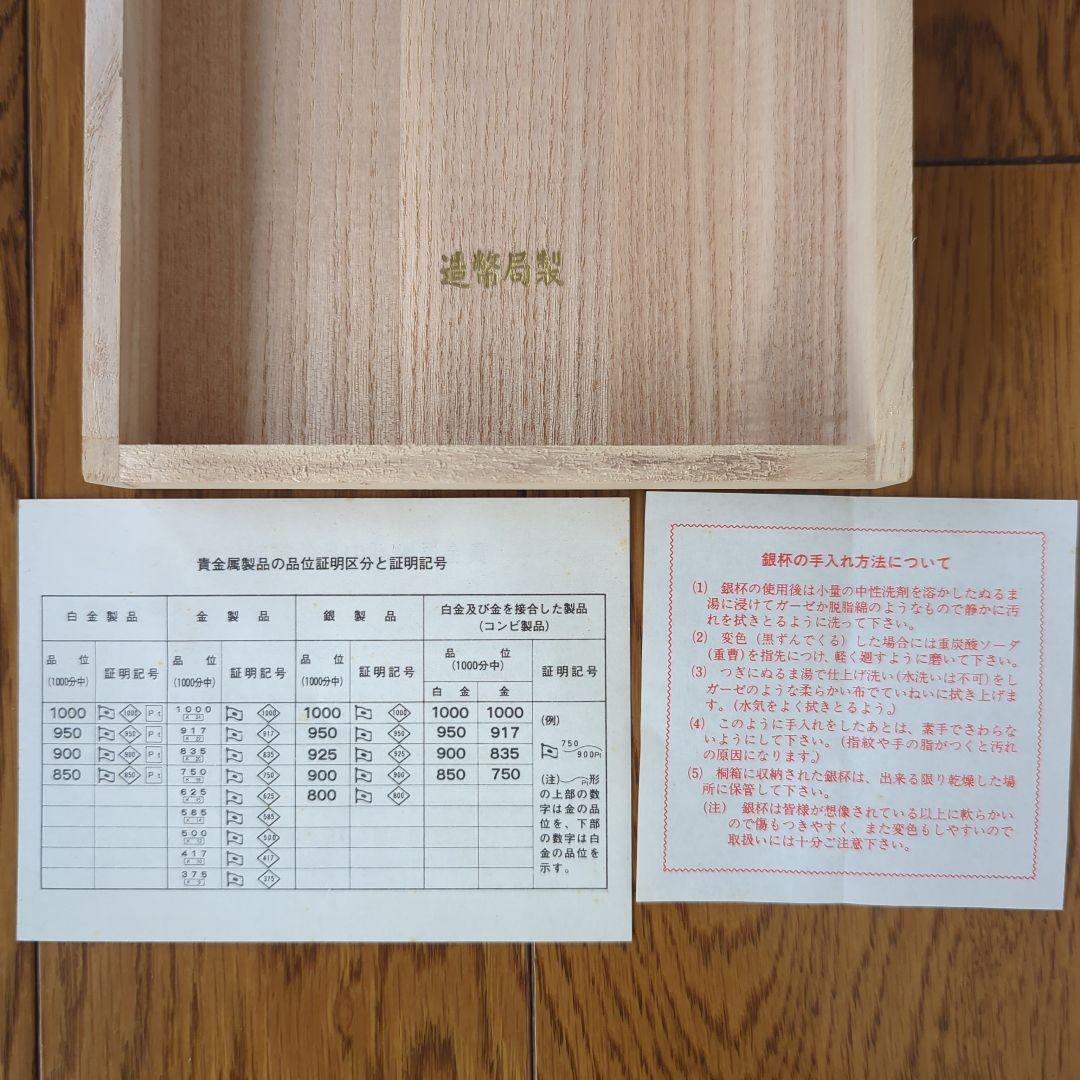 造幣局製
貴金属製品の品位証明区分と証明記号
白金製品 金製品 銀製品 白金及び金を接合した製品
(コンビ製品)
品位 (1000分中) 証明記号 品位 (1000分中) 証明記号 品位 (1000分中) 証明記号 品位 (1000分中) 証明記号
白金 金
1000 1000 Pt 1000 K 24 1000 1000 1000 1000 1000
950 950 Pt 917 K 22 917 950 950 950 917
900 900 Pt 835 K 20 835 925 925 900 835
850 850 Pt 750 K 18 750 900 900 850 750
625 K 15 625 800 800
585 K 14 585
500 K 12 500
417 K 10 417
375 K 9 375
(例)
750
900Pt
(注) Pt形
の上部の数
字は金の品
位を、下部
の数字は白
金の品位を
示す。
銀杯の手入れ方法について
(1) 銀杯の使用後は小量の中性洗剤を溶かしたぬるま
湯に浸けてガーゼか脱脂綿のようなもので静かに汚
れを拭きとるように洗って下さい。
(2) 変色(黒ずんでくる)した場合には重炭酸ソーダ
(重曹)を指先につけ、軽く廻すように磨いて下さい。
(3) つぎにぬるま湯で仕上げ洗い(水洗いは不可)をし
ガーゼのような柔らかい布でていねいに拭き上げま
す。(水気をよく拭きとるよう。)
(4) このように手入れをしたあとは、素手でさわらな
いようにして下さい。(指紋や手の脂がつくと汚れ
の原因になります。)
(5) 桐箱に収納された銀杯は、出来る限り乾燥した場
所に保管して下さい。
(注) 銀杯は皆様が想像されている以上に軟らかい
ので傷もつきやすく、また変色もしやすいので
取扱いには十分ご注意下さい。